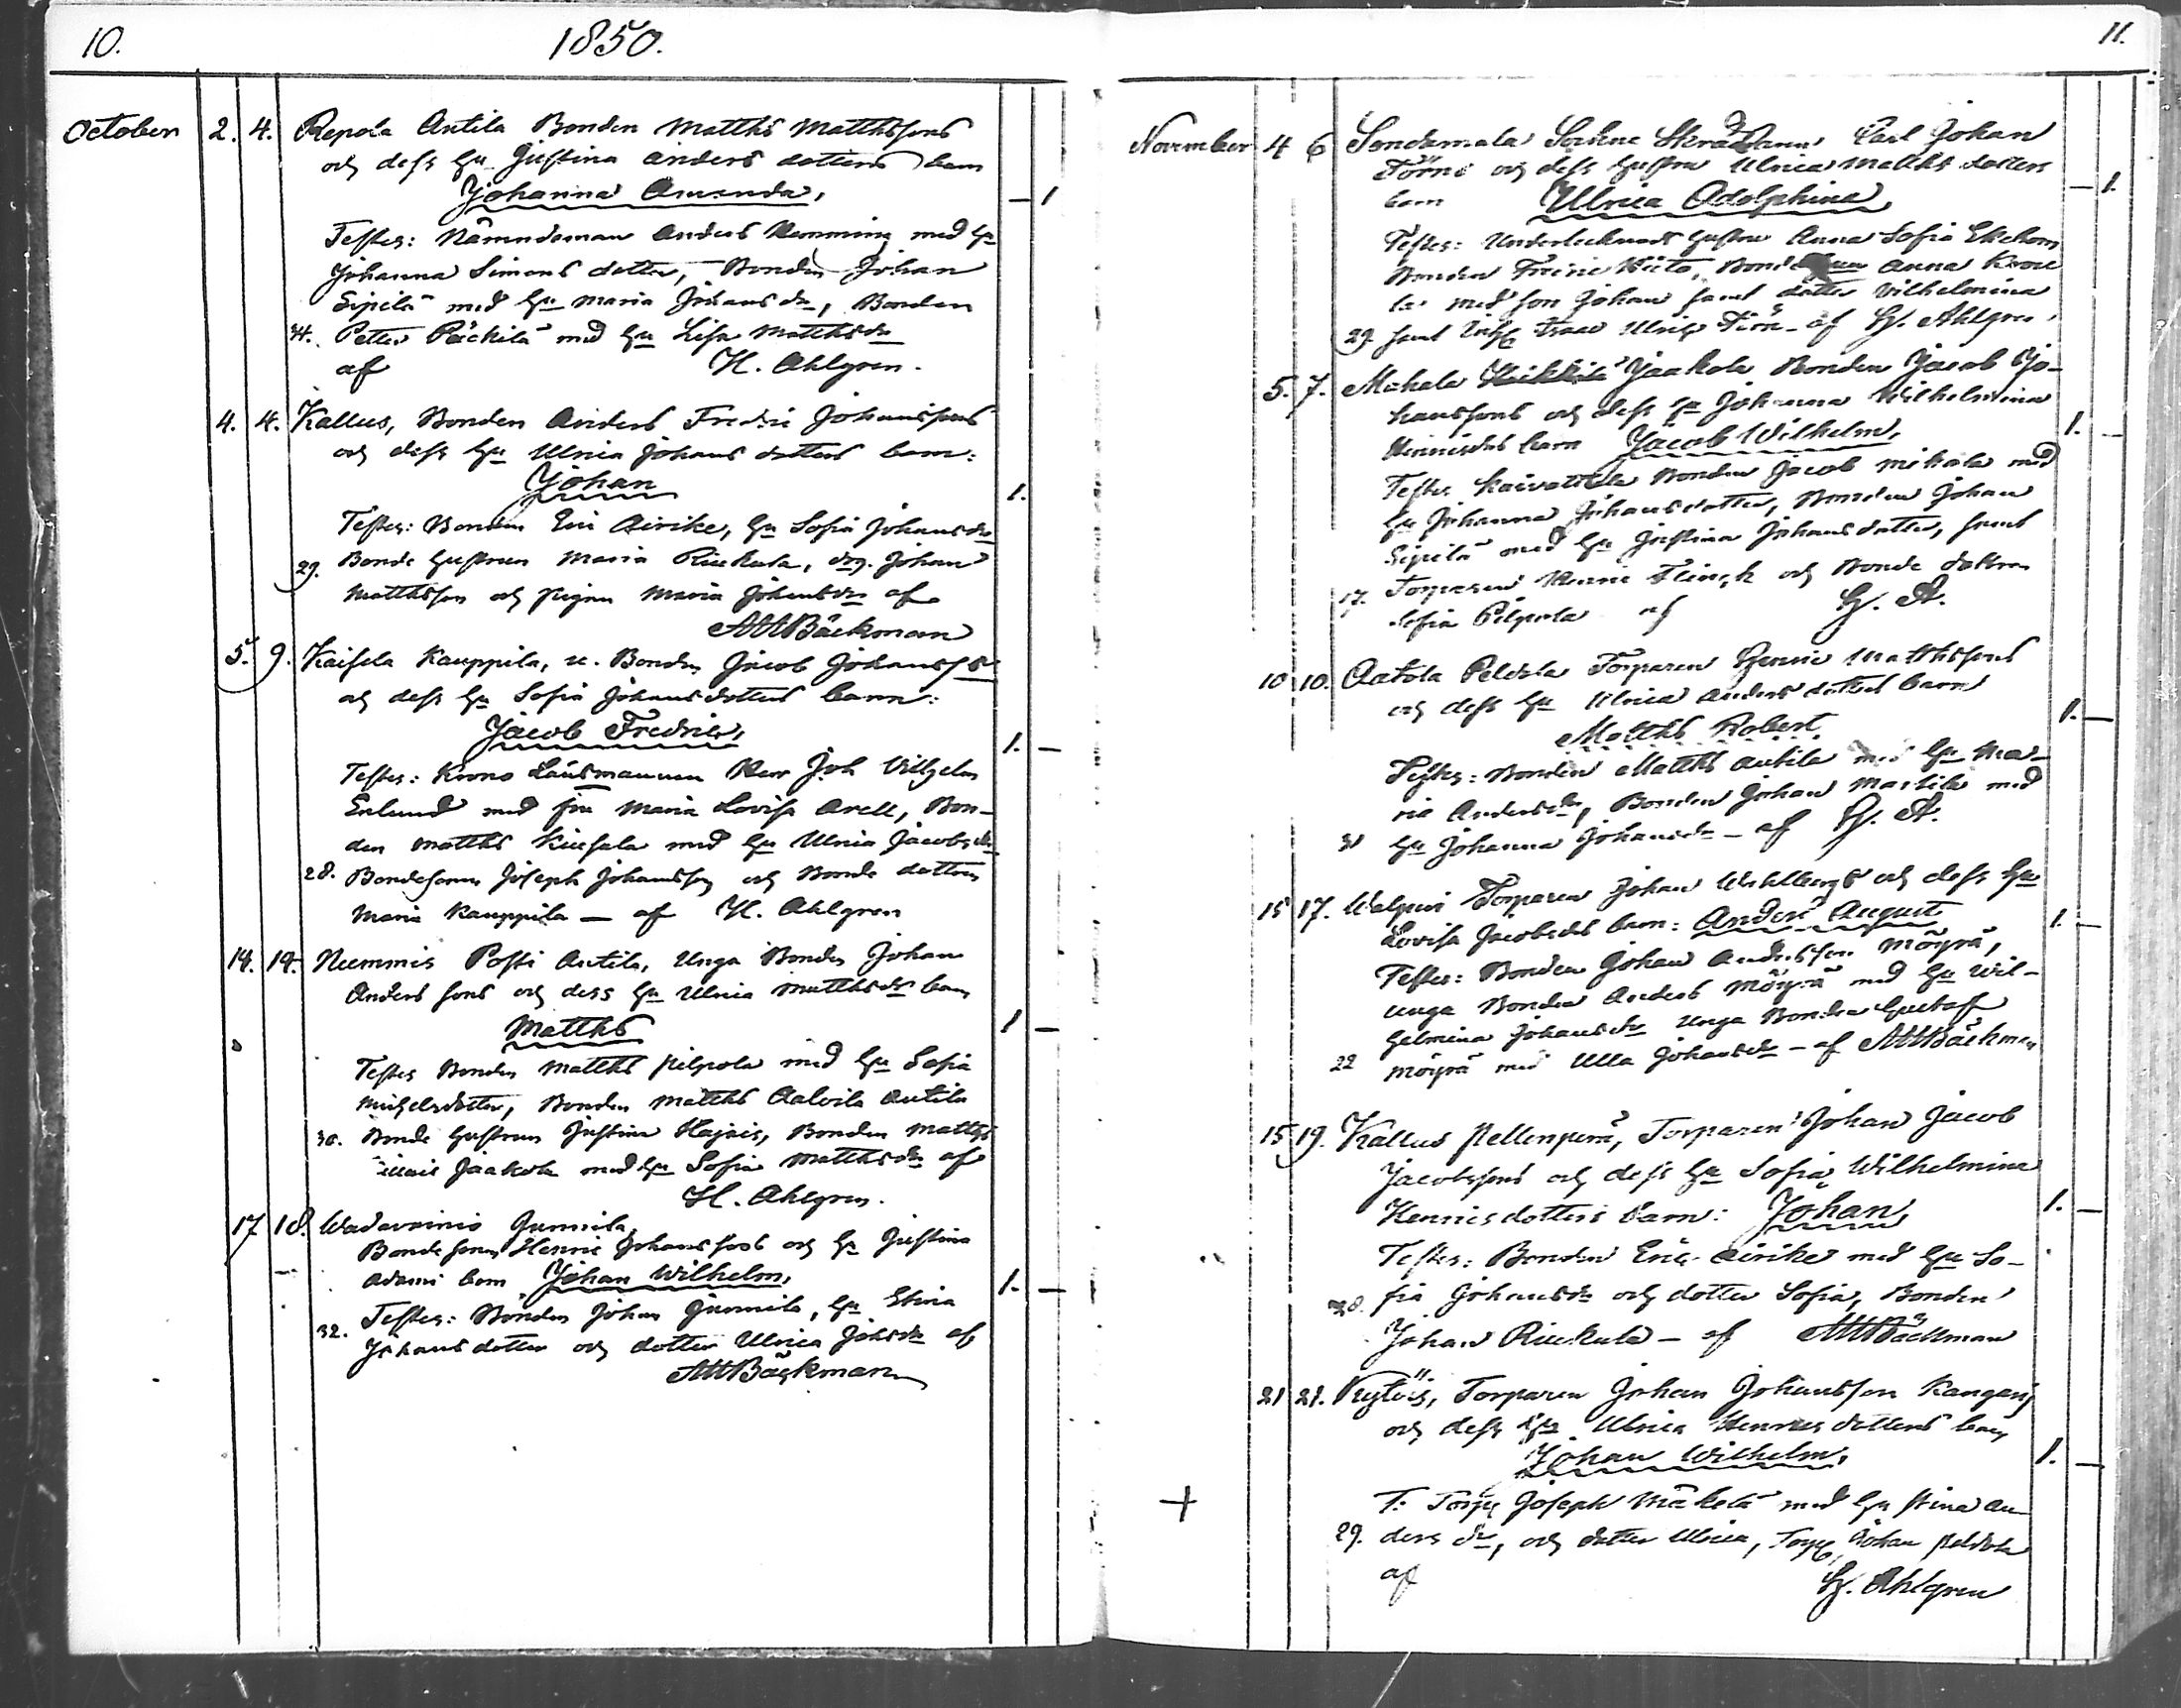 10.
1850.
October 2. 4. Repola Antila Bonden Matths Matthssons
och dess hu Justina Anders dotters barn
Johanna Amanda, — 1
Testes: Nämndeman Anders Hemming med hu
Johanna Simons dotter, Bonden Johan
Sipilä med hu Maria Johansdr, Bonden
34. Petter Päckilä med hu Lisa Matthsdr
af H. Ahlgren.
4. 4. Kallus, Bonden Anders Fredric Johanssons
och dess hu Ulrica Johans dotters barn:
Johan 1.
Testes: Bonden Eric Airike, hu Sofia Johansdr
29. Bonde hustrun Maria Riukula, drg. Johan
Matthsson och pigan Maria Johansdr af
Bäckman
5. 9. Kaisela Kauppila, u. Bonden Jacob Johanss
och dess hu Sofia Johansdotters barn:
Jacob Fredric, 1. —
Testes: Krono Länsmannen Herr Joh Vilhelm
Enlund med fru Maria Lovisa Arell, Bon-
den Matths Kiusala med hu Ulrica Jacobsdr
28. Bondesonen Joseph Johansson och Bonde dottren
Maria Kauppila — af H. Ahlgren
14. 14. Nummis Posti Antila, Unga Bonden Johan
Anders sons och dess hu Ulrica Matthsdrs barn
Matths 1 —
Testes Bonden Matths Pilpola med hu Sofia
Michelsdotter, Bonden Matths Aaloila Antila
30. Bonde hustrun Justina Hajais, Bonden Matths
Jaakola med hu Sofia Matthsdr af
H. Ahlgren.
17 18. Gunnila,
Bonde sonen Henric Johanssons och hu Justina
Adami barn Johan Wilhelm, 1. —
Testes: Bonden Johan Gunnila, hu Stina
32. Johans dotter och dotter Ulrica Johsdr af
Bäckman
11.
November 4 6 Sondermala Sockne Skräddaren Carl Johan
Törne och dess hustru Ulrica Matths dotters
barn Ulrica Adolphina — 1.
Testes: hustru Anna Sofia Ekebom
Bonden Anna
med son Johan samt dotter Vilhelmina
29. samt af H. Ahlgren.
5. 7. Mahala Jaakola Bonden Jacob Jo-
hanssons och dess hu Johanna Wilhelmina
Henricsdrs barn Jacob Wilhelm, 1. —
Testes Bonden Jacob Mikola med
hu Johanna Johansdotter, Bonden Johan
Sipilä med hu Justina Johansdotter, samt
17. Torparen Henric Flinck och Bonde dottren
Sofia Pilpola af H. A.
10 10. Aatola Peldola Torparen Henric Matthssons
och dess hu Ulrica Anders dotters barn
Matths Robert 1. —
Testes: Bonden Matths Antila med hu Ma-
ria Andersdr, Bonden Johan Martila med
31 hu Johanna Johansdr — af H. A.
15 17. Walpuri Torparen Johan Wahlbergs och dess hu
Lovisa Jacobsdrs barn: Anders August 1. —
Testes: Bonden Johan Andersson Möyrä,
unga Bonden Anders Möyrä med hu Wil-
helmina Johansdr unga Bonden Gustaf
22 Möyrä med Ulla Johansdr — af Bäckman
15 19. Kallus Pellenperä, Torparen Johan Jacob
Jacobssons och dess hu Sofia Wilhelmina
Henrics dotters barn: Johan, 1. —
Testes: Bonden Eric Airike med hu So-
28. fia Johansdr och dotter Sofia, Bonden
Johan Riukula — af Bäckman
21 21. Torparen Johan Johansson Kangas
och dess hu Ulrica Henrics dotters barn
Johan Wilhelm, 1. —
+ T: Torp Joseph Mäkelä med hu Stina An-
29. ders dr, och dotter Ulrica, Torp Johan Peldola
af H. Ahlgren